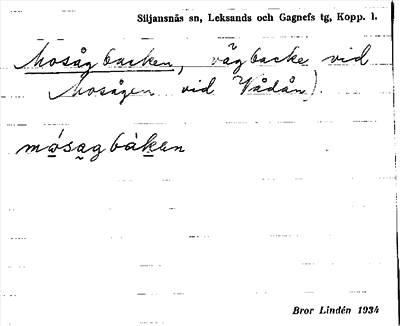 Siljansnäs sn, Leksands och Gagnefs tg, Kopp. l.
Mosågbacken, vägbacke vid
Mosågen vid Vådån).
mósagbàken
Bror Lindén 1934